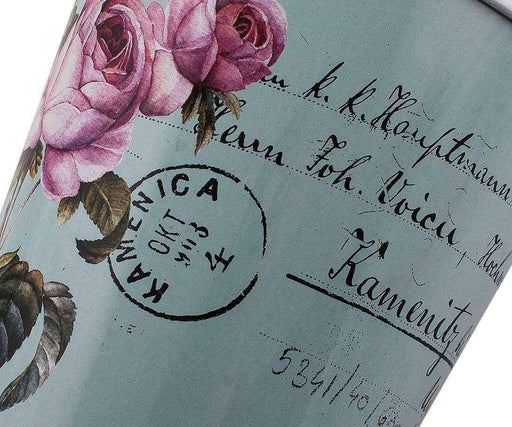 k. k. Hauptmann
Herrn Joh. Voicu,
Kamenitz
5341/40/6
KAMENICA
OKT
4